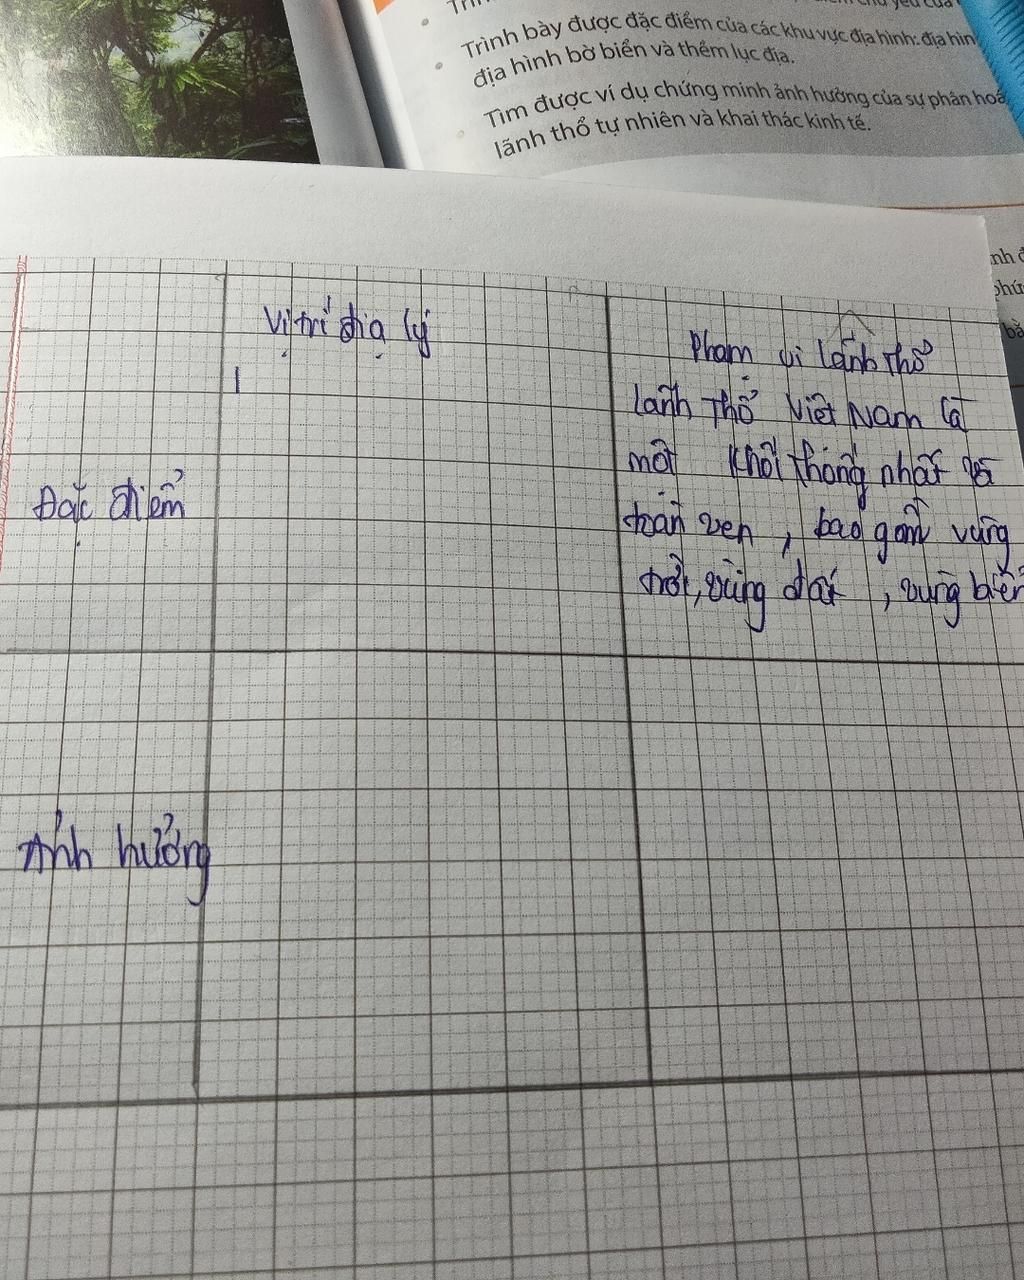 Trình bày được đặc điểm của các khu vực địa hình: địa hìn
địa hình bờ biển và thềm lục địa.
Tìm được ví dụ chứng minh ảnh hưởng của sự phân hoá
lãnh thổ tự nhiên và khai thác kinh tế.
Vị trí địa lý
Phạm vi lãnh thổ
lãnh thổ Việt Nam là
một khối thống nhất và
toàn vẹn, bao gồm vùng
trời, vùng đất, vùng biển
Đặc điểm
Ảnh hưởng